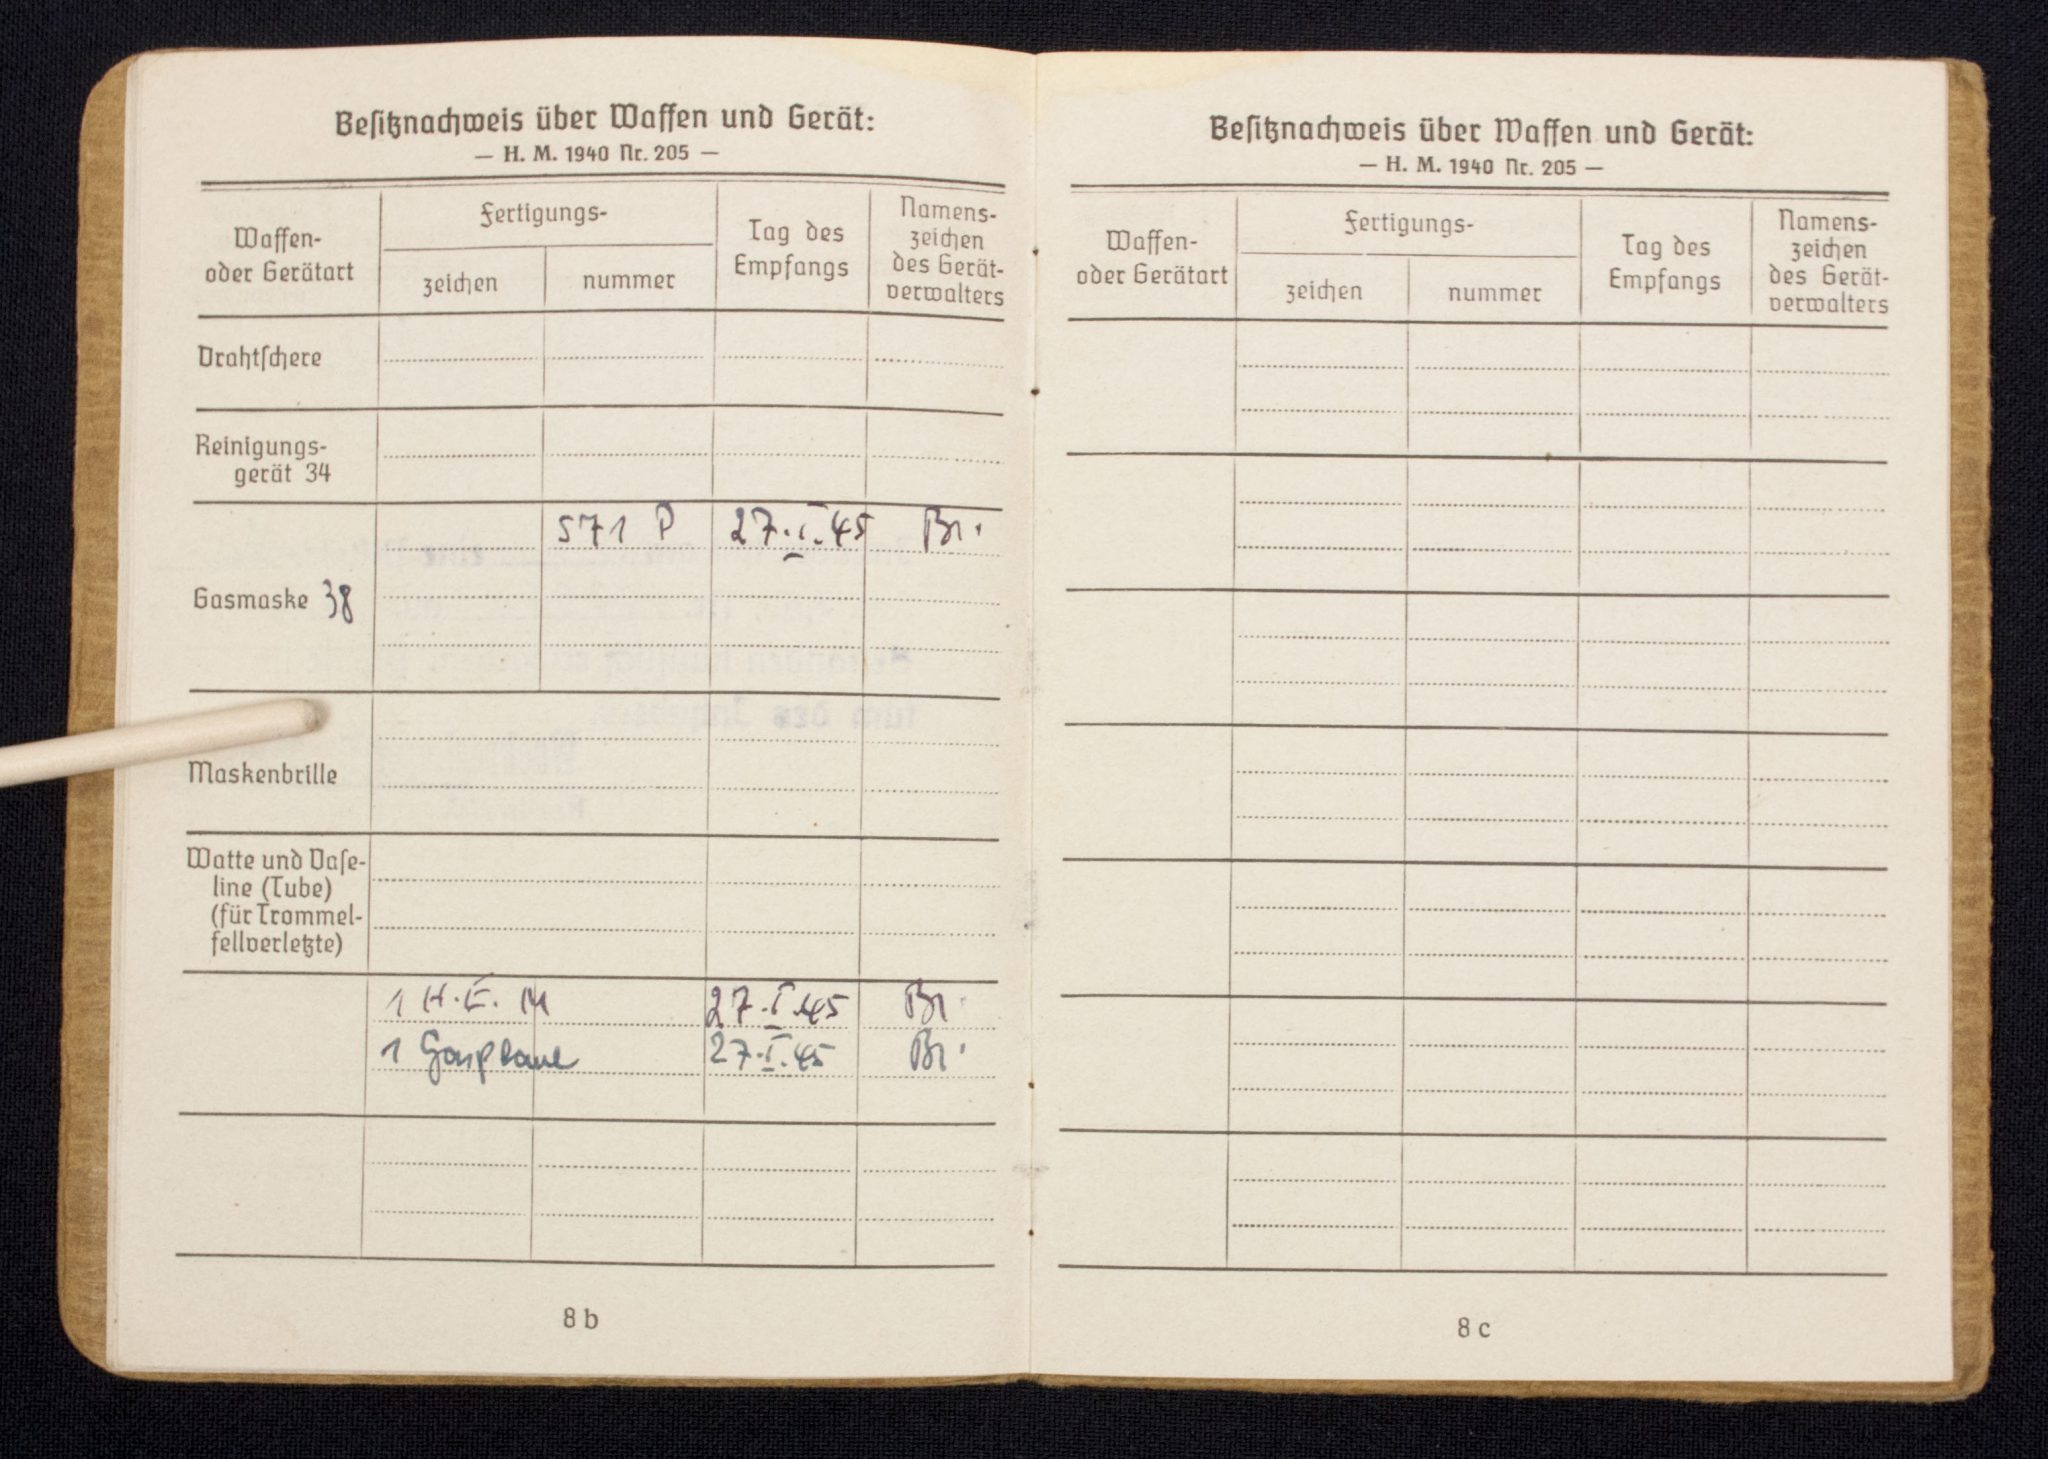 Besitznachweis über Waffen und Gerät:
— H. M. 1940 Nr. 205 —
Waffen-
oder Gerätart
Fertigungs-
zeichen
nummer
Tag des
Empfangs
Namens-
zeichen
des Gerät-
verwalters
Drahtschere
Reinigungs-
gerät 34
571 P 27.I.45 Br.
Gasmaske 38
Maskenbrille
Watte und Vase-
line (Tube)
(für Trommel-
fellverletzte)
1 H.E. M 27.I.45 Br.
1 Gasplane 27.I.45 Br.
8 b
Besitznachweis über Waffen und Gerät:
— H. M. 1940 Nr. 205 —
Waffen-
oder Gerätart
Fertigungs-
zeichen
nummer
Tag des
Empfangs
Namens-
zeichen
des Gerät-
verwalters
8 c